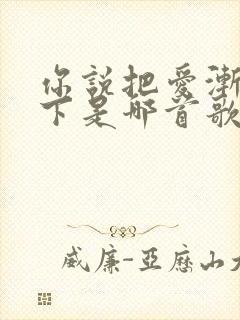 你說把愛漸
下是哪首歌
威廉-亞歷山大